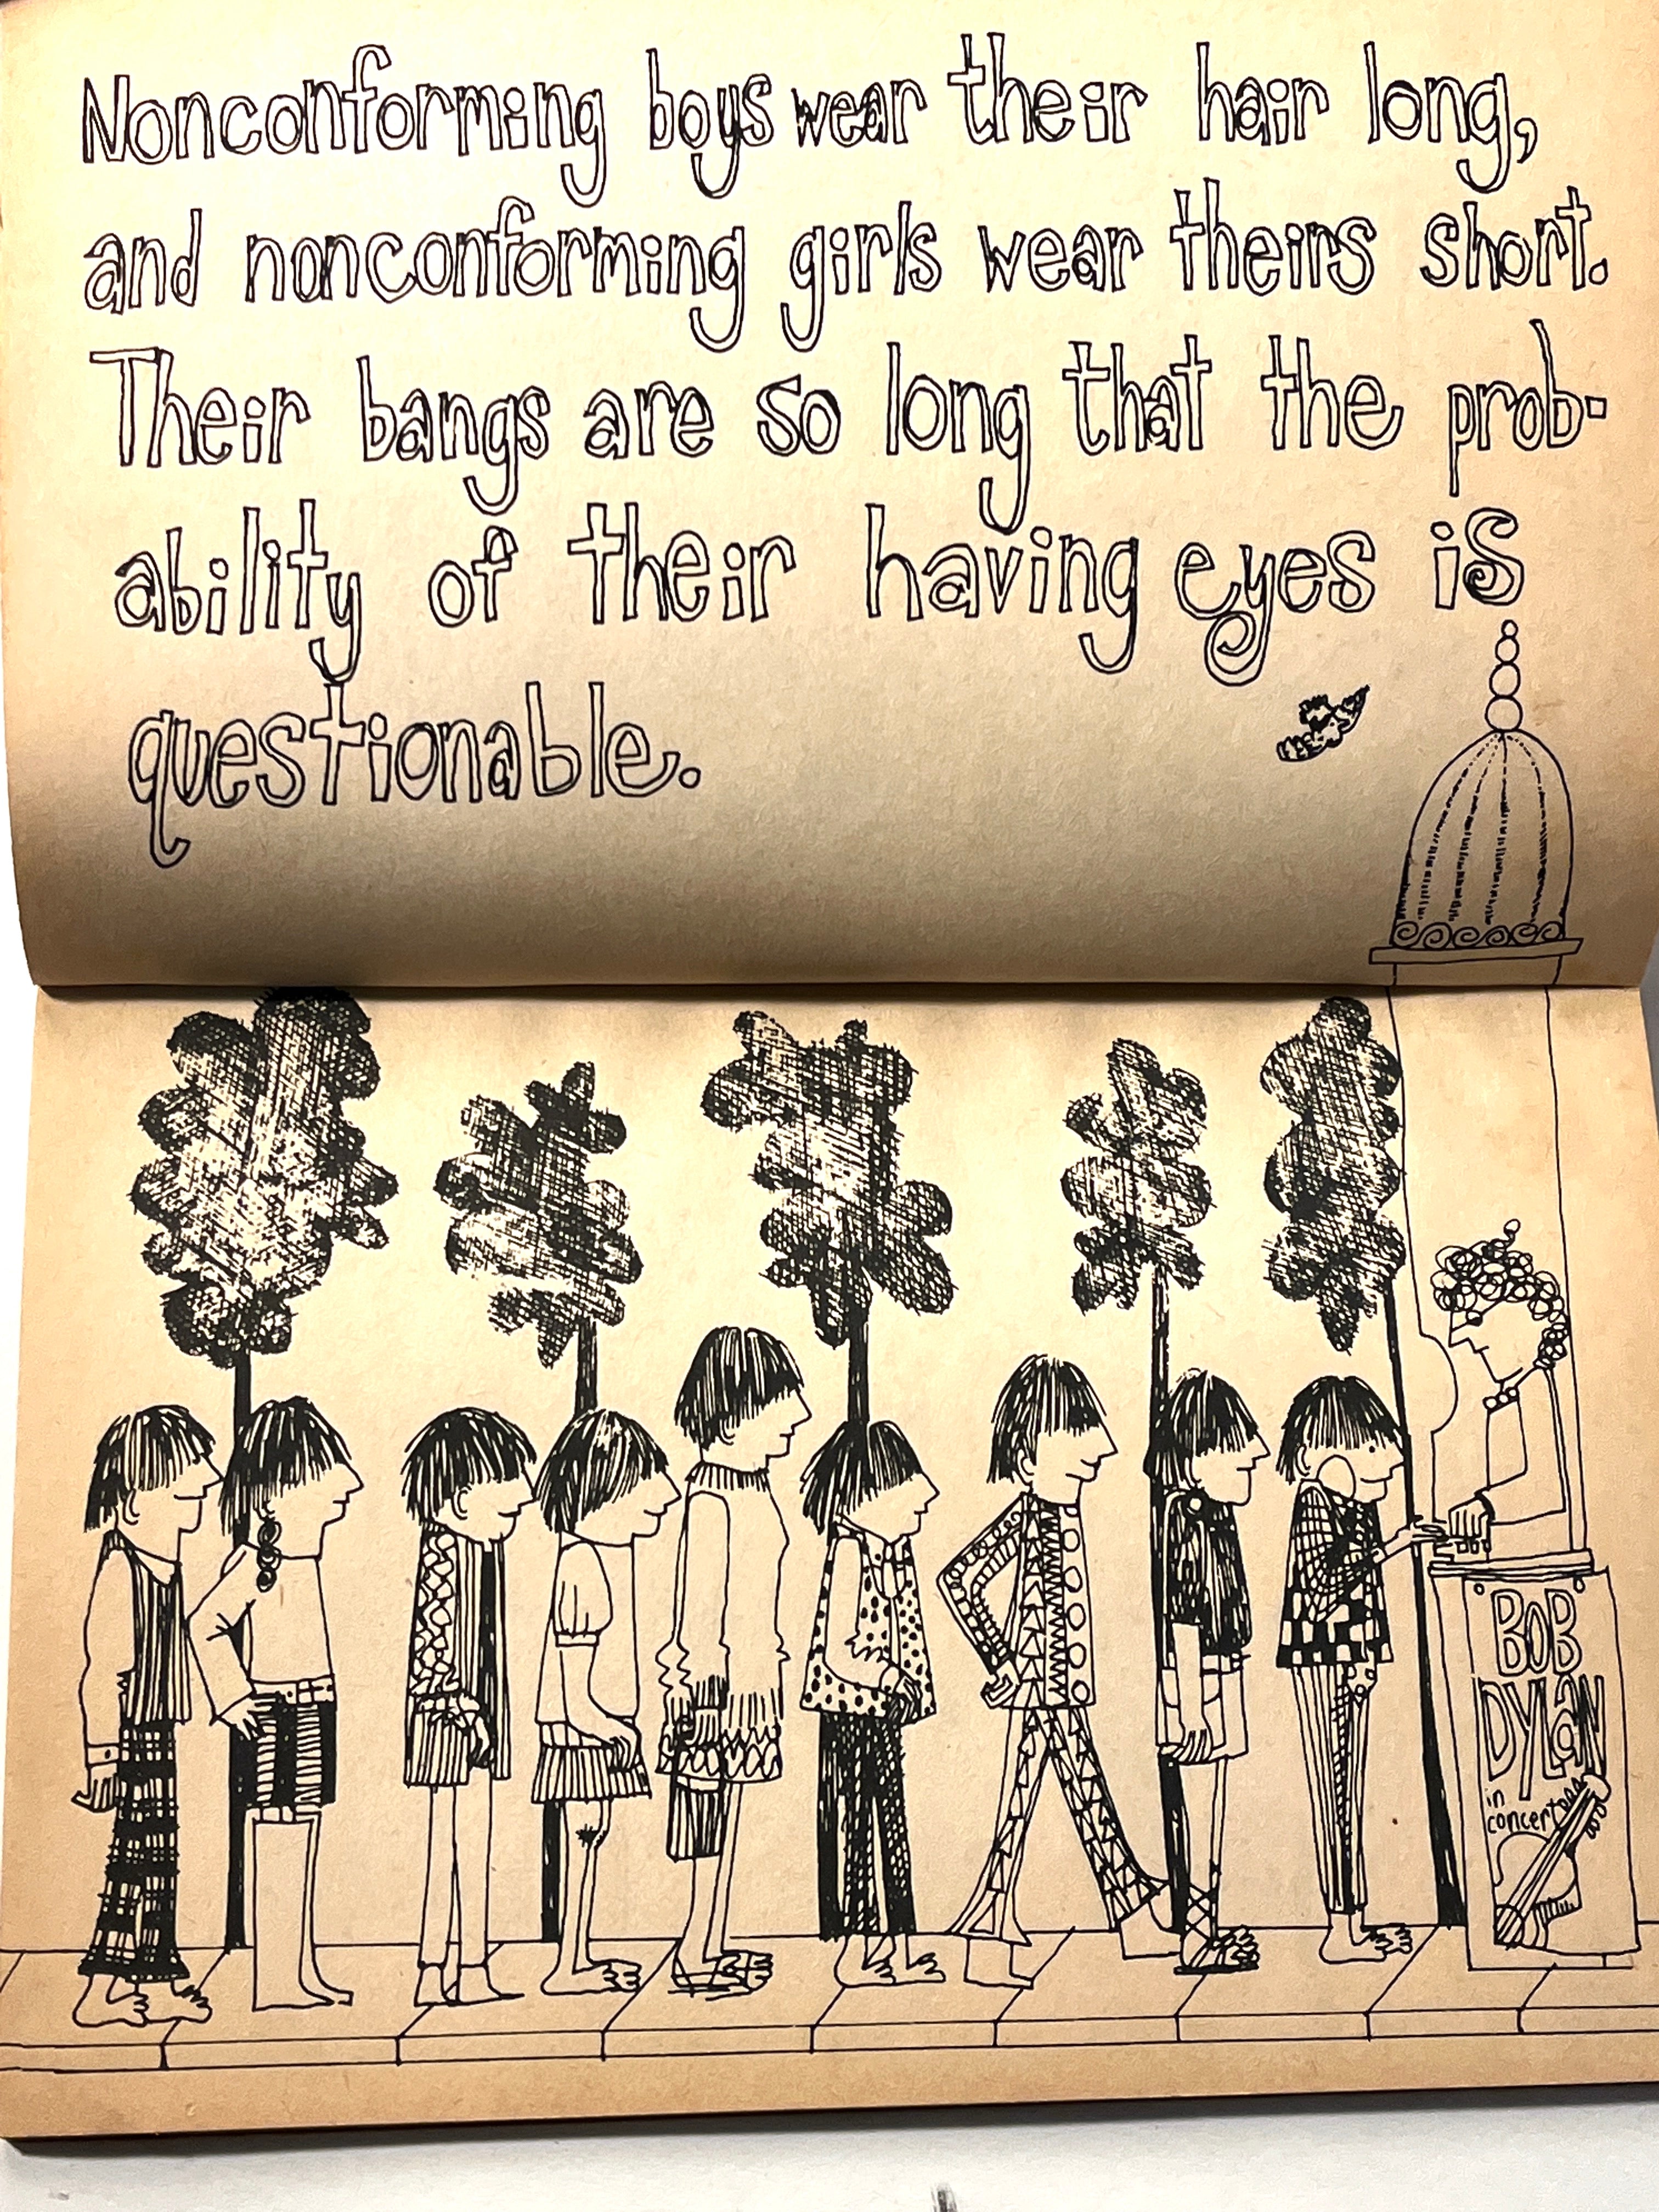 Nonconforming boys wear their hair long,
and nonconforming girls wear theirs short.
Their bangs are so long that the prob-
ability of their having eyes is
questionable.
BOB
DYLAN
in
concert